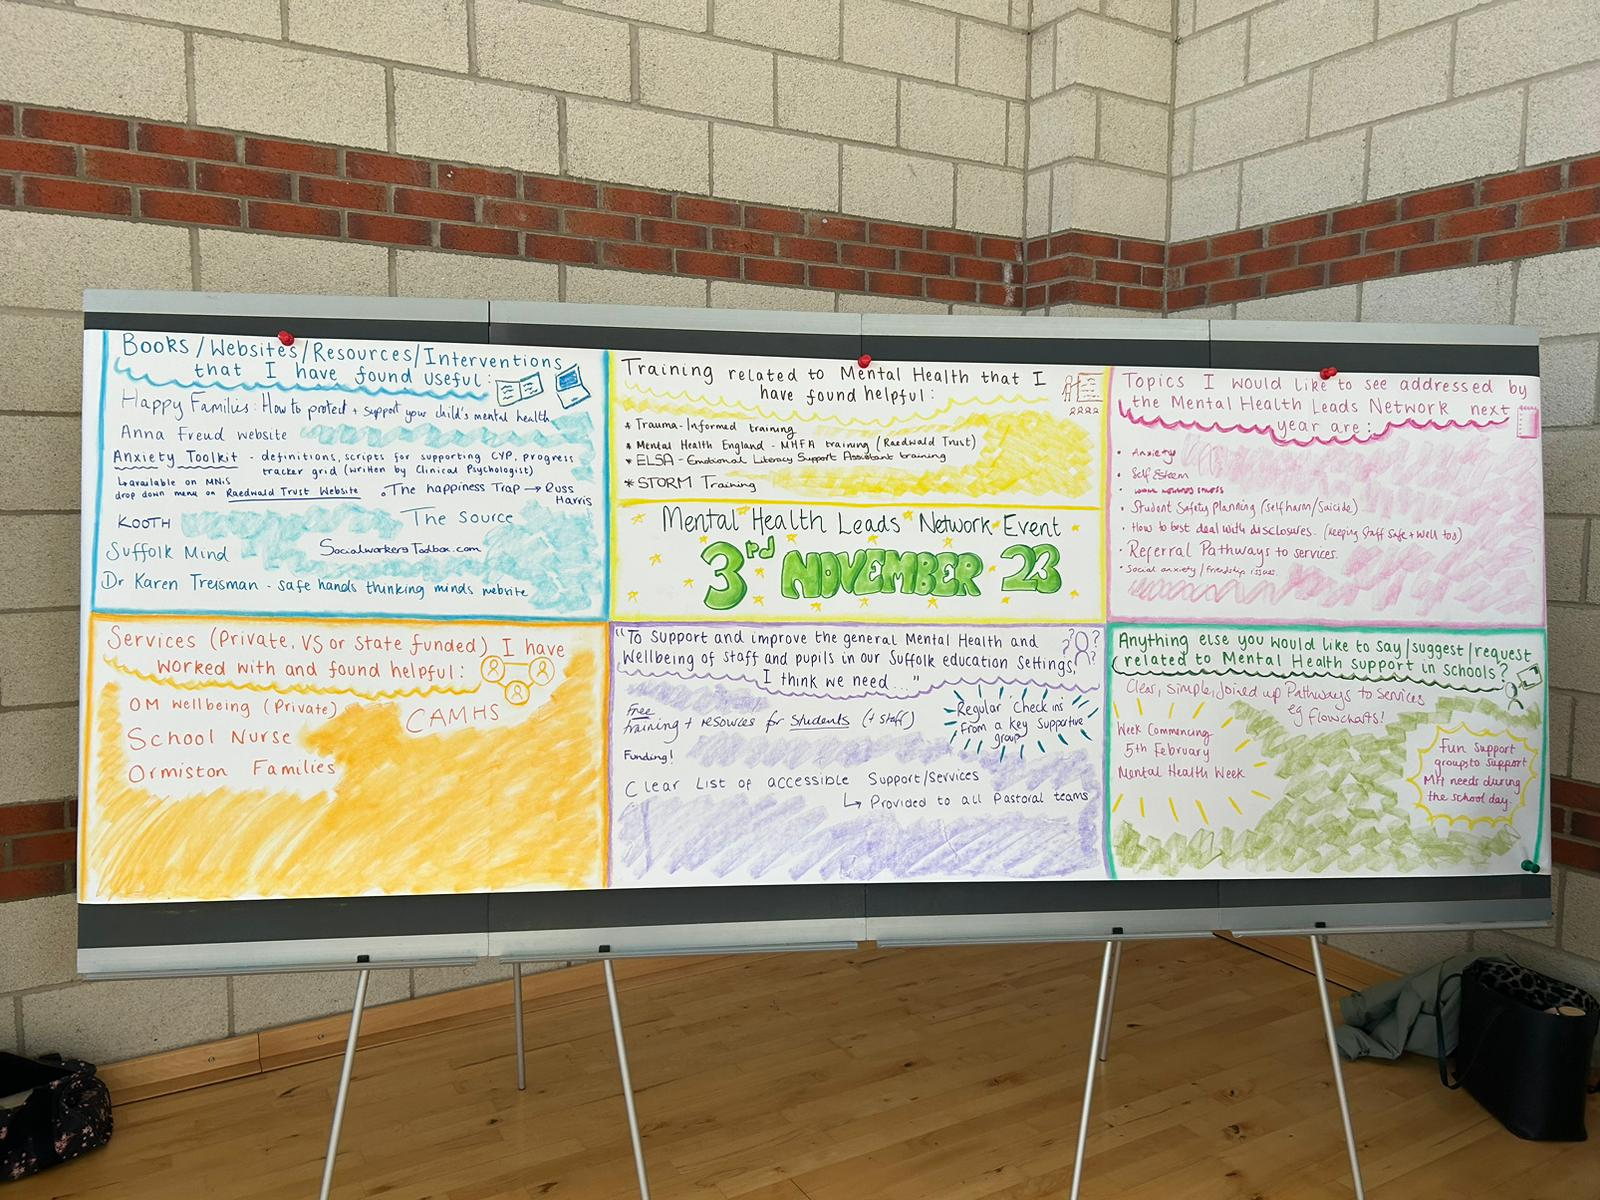 Books/Websites/Resources/Interventions
that I have found useful:
Happy Families: How to protect + support your child's mental health
Anna Freud website
Anxiety Toolkit - definitions, scripts for supporting CYP, progress
tracker grid (written by Clinical Psychologist)
↳ available on MNiS
drop down menu on Raedwald Trust Website
.The happiness Trap → Russ
Harris
KOOTH
The Source
Suffolk Mind
SocialworkersToolbox.com
Dr Karen Treisman - safe hands thinking minds website
Training related to Mental Health that I
have found helpful:
* Trauma-Informed training
* Mental Health England - MHFA training (Raedwald Trust)
* ELSA - Emotional Literacy Support Assistant training
* STORM Training
Mental Health Leads Network Event
3rd NOVEMBER 23
Topics I would like to see addressed by
the Mental Health Leads Network next
year are:
• Anxiety
• Self Esteem
• Student Safety Planning (self harm/Suicide)
• How to best deal with disclosures. (keeping Staff Safe + well too)
• Referral Pathways to services.
• Social anxiety/friendship issues.
Services (Private, VS or State funded) I have
worked with and found helpful:
OM Wellbeing (Private)
CAMHS
School Nurse
Ormiston Families
"To Support and improve the general Mental Health and
Wellbeing of Staff and pupils in our Suffolk education Settings,
I think we need..."
Free
training + resources for Students (+ staff)
Regular check ins
from a key Supportive
group
Funding!
Clear List of accessible Support/Services
↳ Provided to all Pastoral teams
Anything else you would like to say/suggest/request
related to Mental Health support in schools?
Clear, Simple, Joined up Pathways to Services
eg flowcharts!
Week Commencing
5th February
Mental Health Week
Fun Support
groups to Support
MH needs during
the school day.